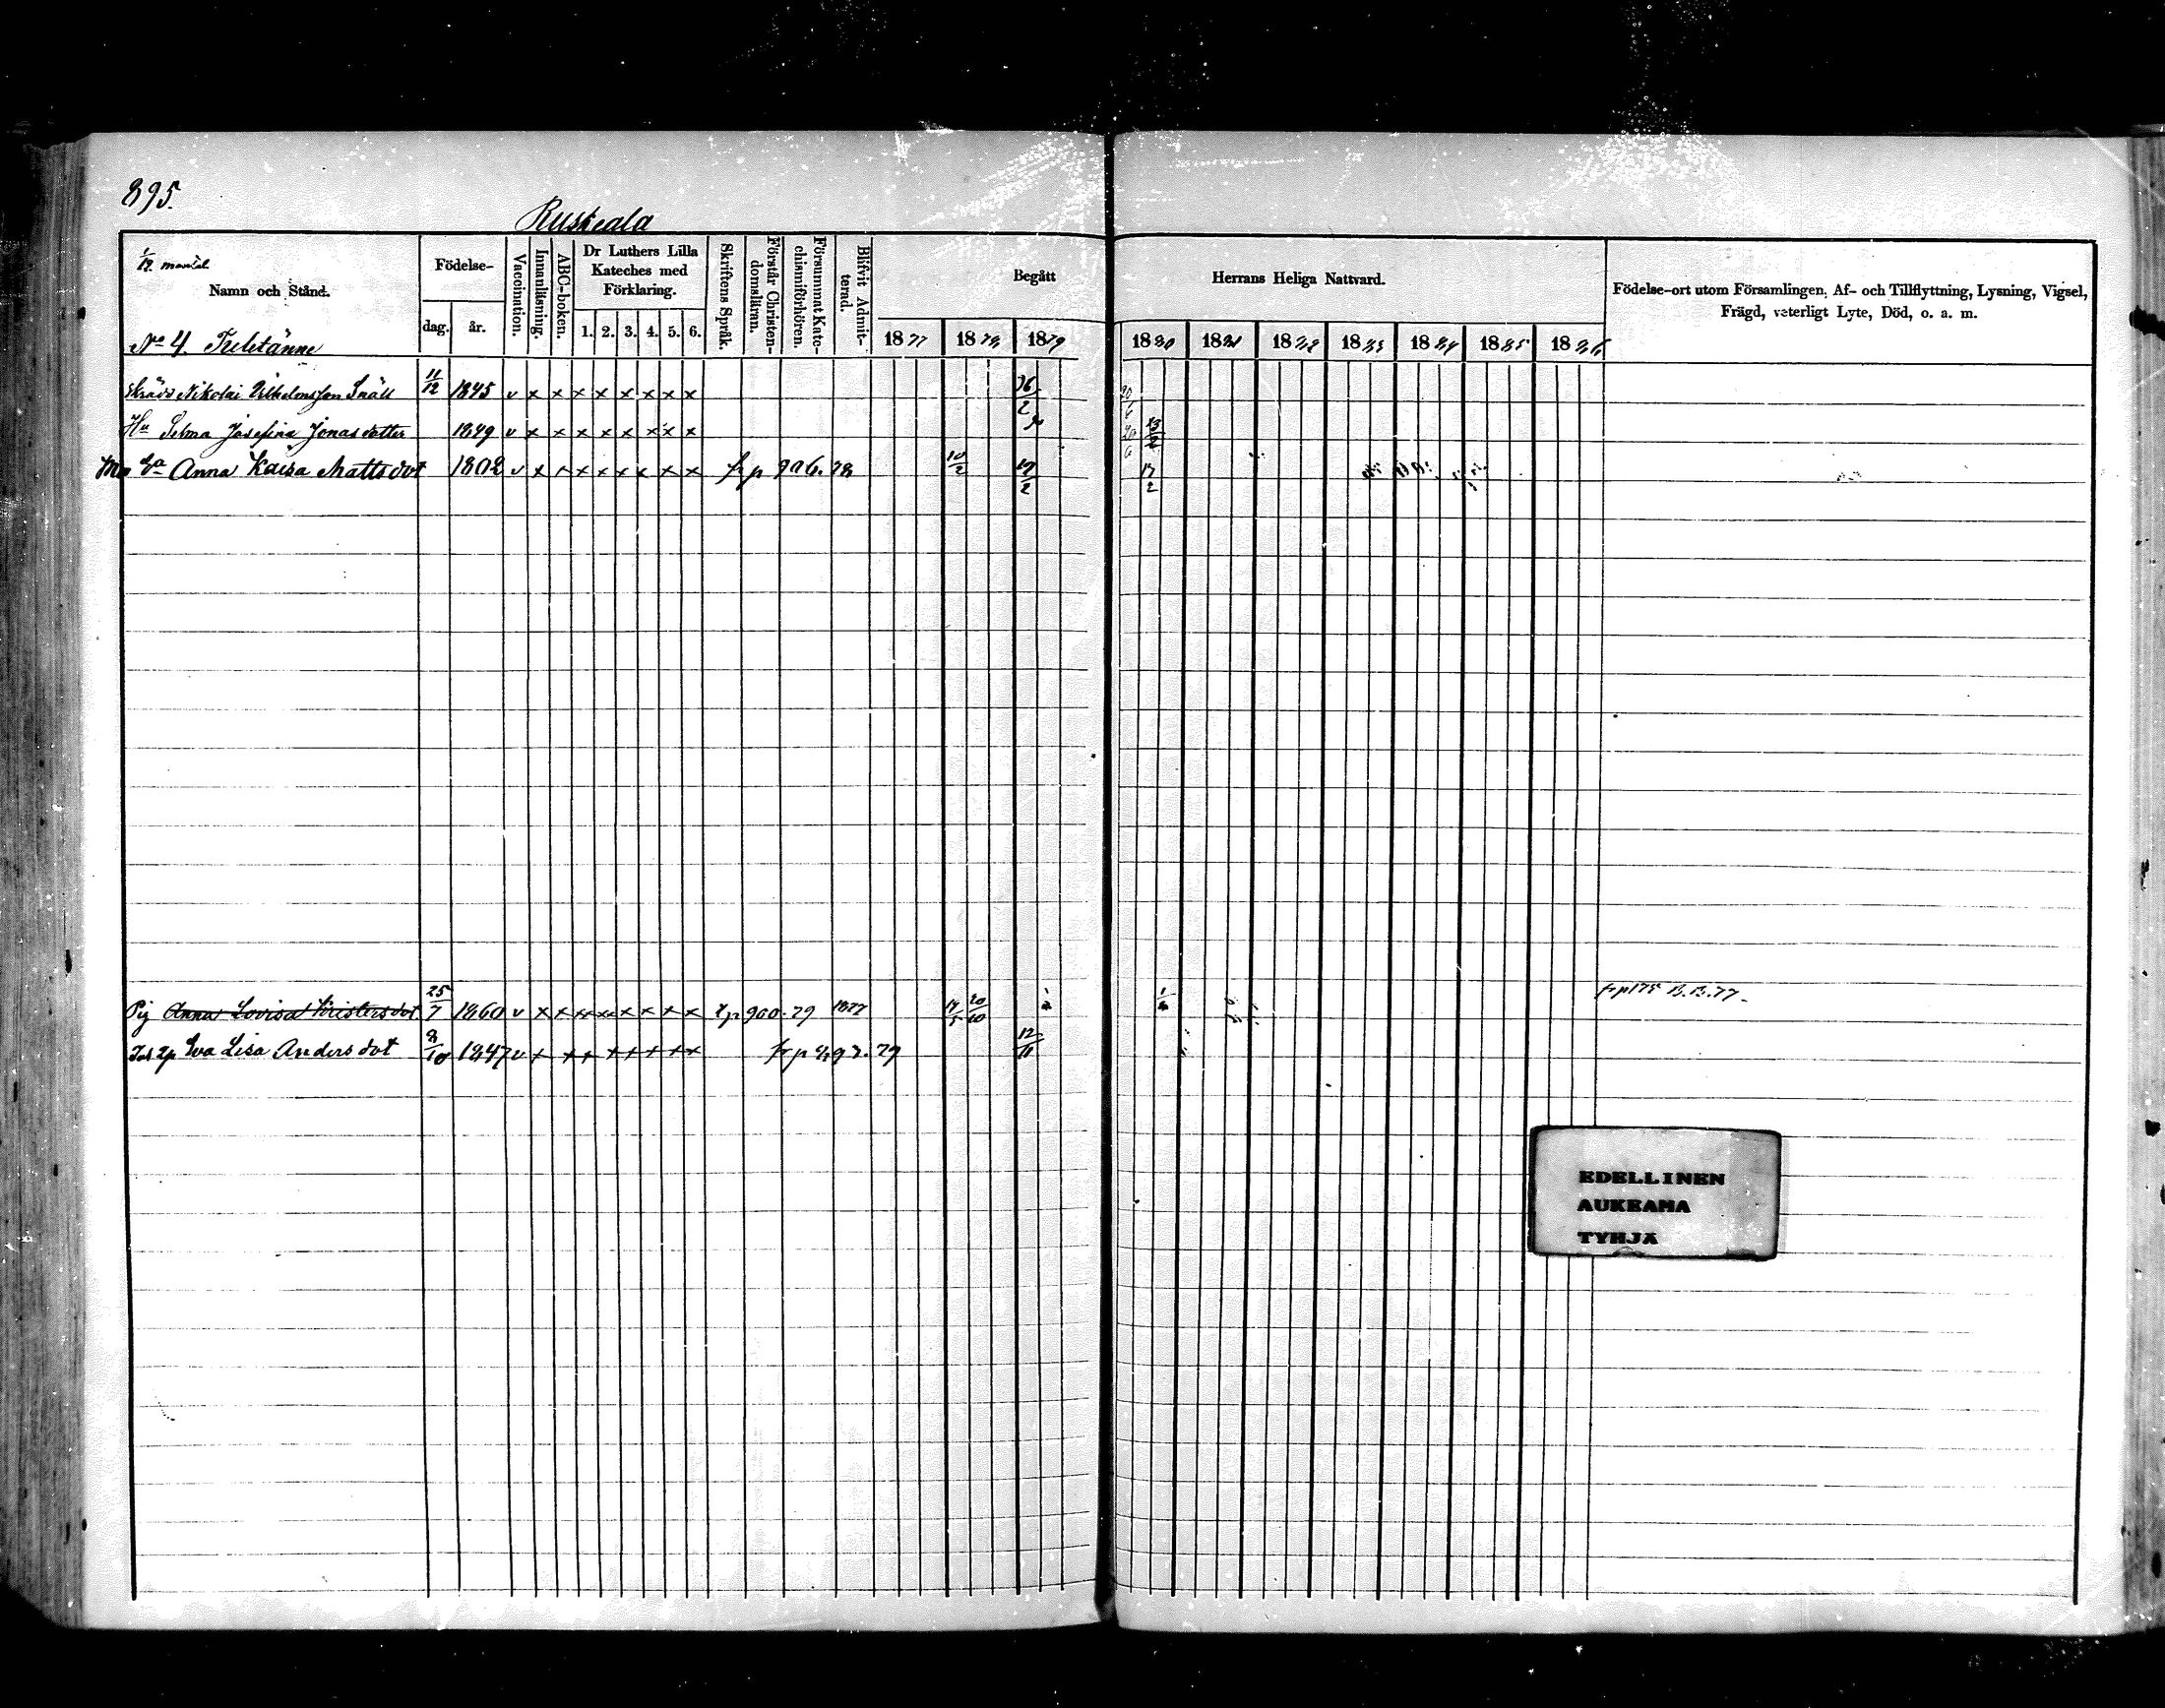 895.
Ruskeala
1/12 mantal
Namn och Stånd.
Födelse-
dag.
år.
Vaccination.
Innanläsning.
ABC-boken.
Dr Luthers Lilla
Kateches med
Förklaring.
1. 2. 3. 4. 5. 6.
Skriftens Språk.
Förstår Christen-
domsläran.
Försummat Kate-
chismiförhören.
Blifvit Admit-
terad.
Begått
Herrans Heliga Nattvard.
1877 1878 1879 1880 1881 1882 1883 1884 1885 1886
Födelse-ort utom Församlingen, Af- och Tillflyttning, Lysning, Vigsel,
Frägd, veterligt Lyte, Död, o. a. m.
No 4.
Nikolai Vilhelmsson Snäll 11/12 1845 v x x x x x x x x 20/6
Hu Selma Josefina Jonasdotter 1849 v x x x x x x x x 20/6
Anna Kaisa Mattsdot 1802 v x x x x x x x x fr p 906. 78 10/2 17/2 17/2
Pig Anna Lovisa Kristersdot 25/7 1860 v x x xx xx x x x x 900. 79 1877 20/10
fr p 175 13.13.77.
Eva Lisa Andersdot 1847 v x x x x x x x x fr p 897. 79 12/11
EDELLINEN
AUKEAMA
TYHJÄ